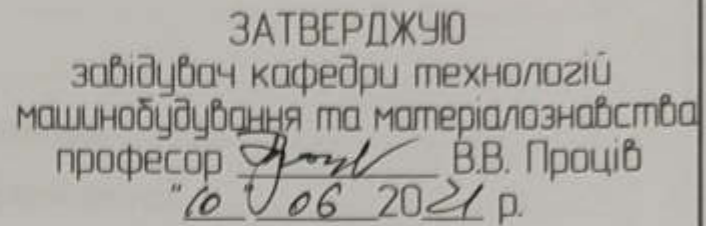 ЗАТВЕРДЖУЮ
завідувач кафедри технологій
машинобудування та матеріалознавства
професор В.В. Проців
"10" 06 2021 р.